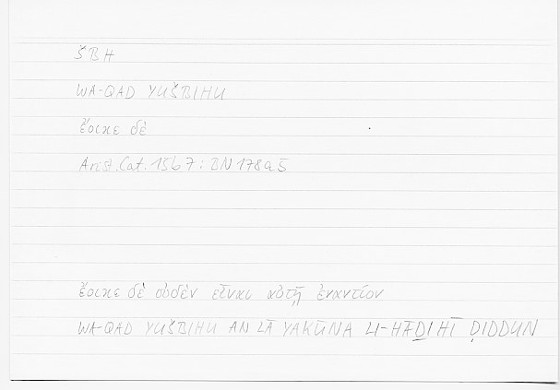 ŠBH
WA-QAD YUŠBIHU
ἔοικε δὲ
Arist. Cat. 15b7 : BN 178a5
ἔοικε δὲ οὐδὲν εἶναι αὐτῇ ἐναντίον
WA-QAD YUŠBIHU AN LĀ YAKŪNA LI-HĀḎIHĪ ḌIDDUN